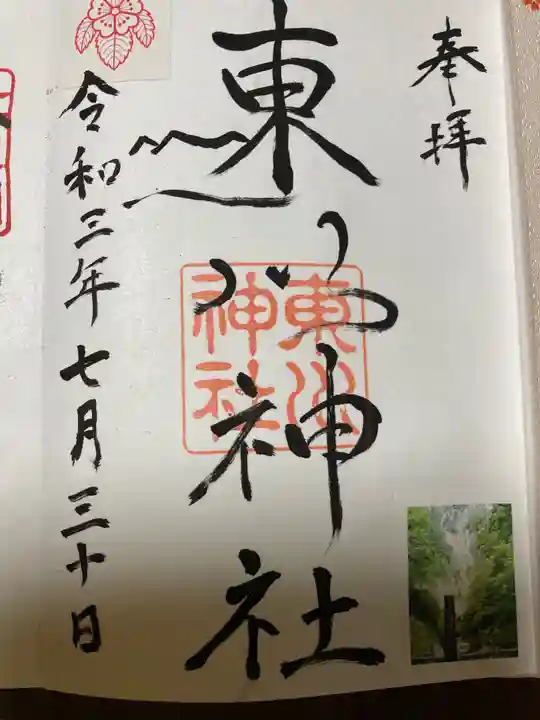 奉拝
東
神社
東
神社
令和三年七月三十日